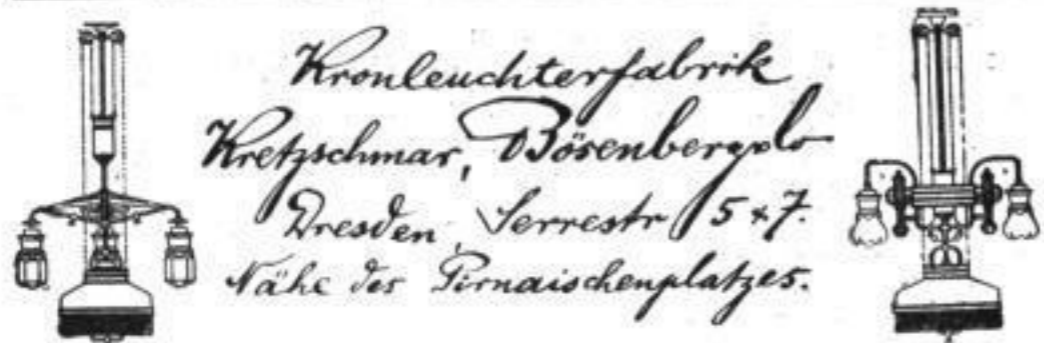 Kronleuchterfabrik
Kretzschmar, Bösenberg & Co
Dresden, Serrestr 5 & 7.
Nähe des Pirnaischenplatzes.